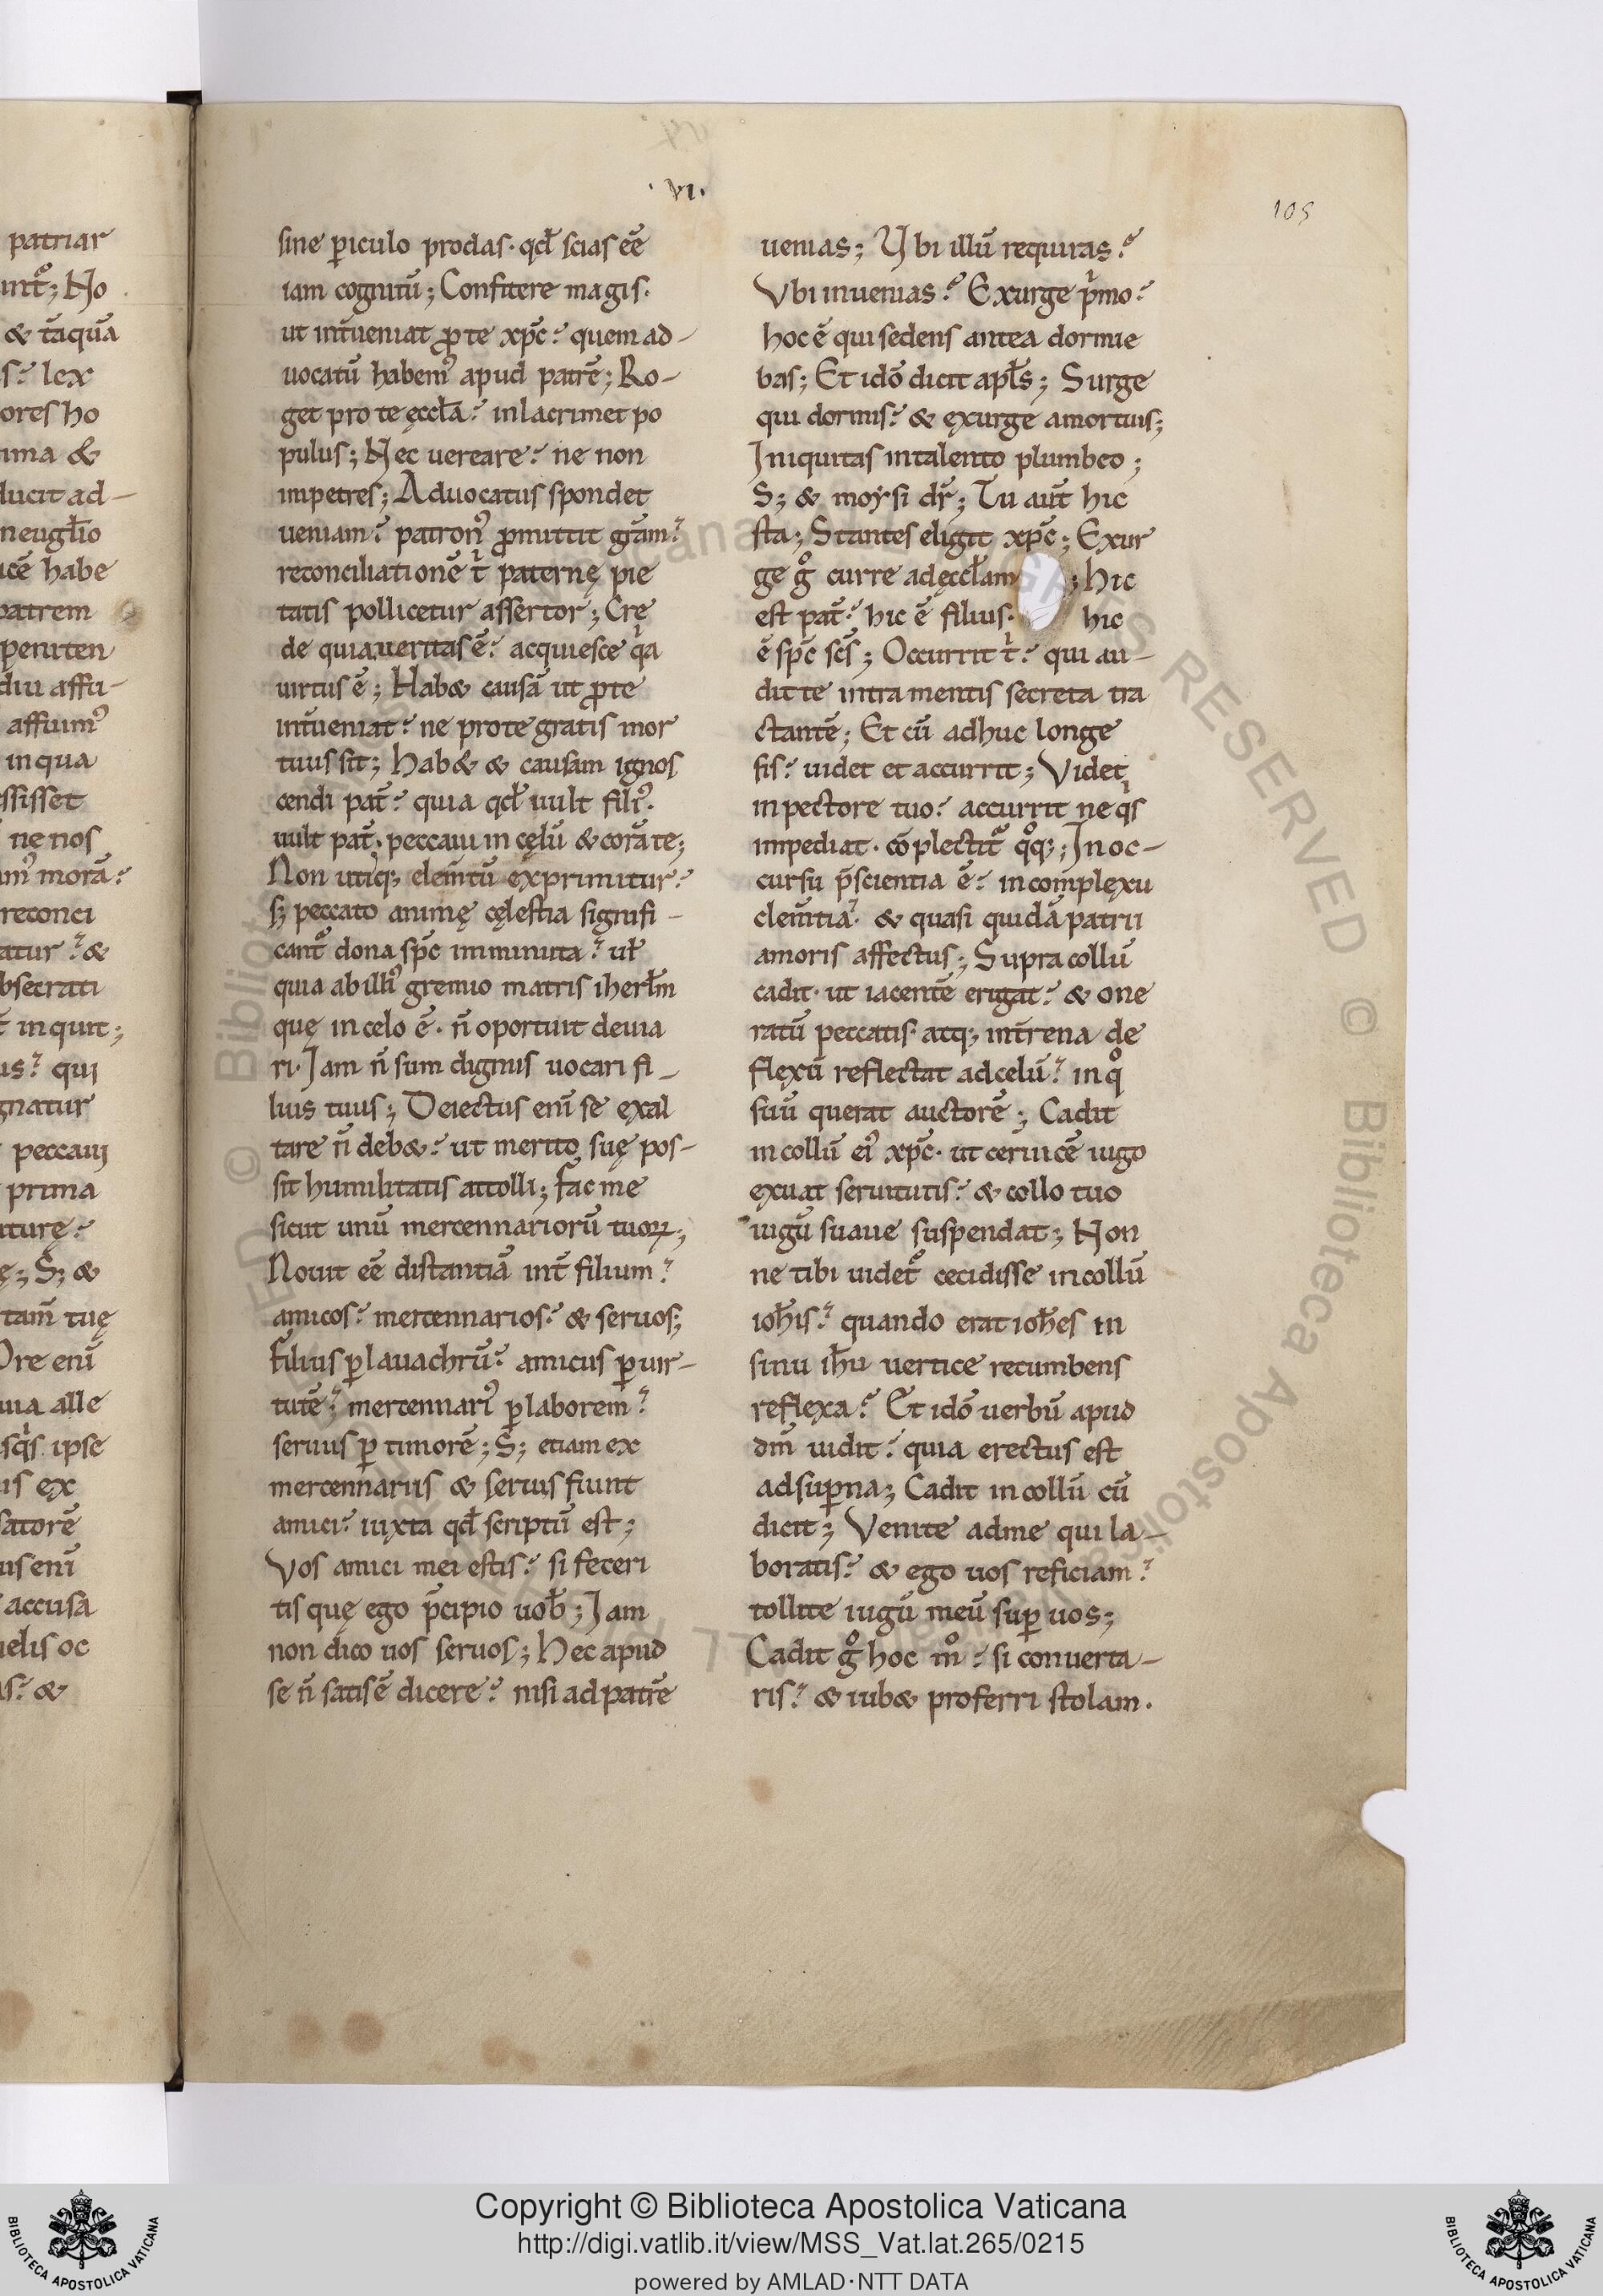 ·VI·
105
patriar
unt᷒; No
& tāqua
s? lex
ores ho
ima &
ducit ad-
neuglīo
icē habe
patrem
peniten
diu affu-
affuim᷒
in qua
ssisset
ne nos
am᷒ morā?
reconci
atur? &
bsecrati
inquit;
us? qui
gnatur
peccaui
prima
turę?
ę; S; &
tam̄ tuę
Ore enī
uia alle
sq̍s ipse
us ex
satorē
us enī
accusa
uelis oc
s? &
sine ꝑiculo prodas· qđ scias eē
iam cognitū; Confitere magis·
ut int̄ueniat ꝓte xp̄c? quem ad-
uocatū habem᷒ apud patrē; Ro-
get pro te ęccl̄a? inlacrimet po
pulus; Nec uereare? ne non
impetres; Aduocatus spondet
ueniam? patron᷒ ꝓmittit gr̄am?
reconciliationē t̍ paternę pie
tatis pollicetur assertor; Cre
de quia ueritas ē? acquiesce q̍a
uirtus ē; Hab& causā ut ꝓte
int̄ueniat? ne pro te gratis mor
tuus sit; hab& & causam ignos
cendi pat̄? quia qđ uult fili᷒·
uult pat̄· peccaui in cęlū & corā te;
Non utiq; elem̄tū exprimitur?
s; peccato animę cęlestia signifi-
cant᷒ dona sp̄c imminuta? ul̄
quia ab illi᷒ gremio matris iherl̄m
quę in celo ē· n̄ oportuit deuia
ri· Iam n̄ sum dignus uocari fi-
lius tuus; Deiectus enī se exal
tare n̄ deb&? ut merito suę pos-
sit humilitatis attolli; fac me
sicut unū mercennariorū tuoꝝ;
Nouit eē distantiā int̄ filium?
amicos? mercennarios? & seruos;
filius ꝑ lauachrū? amicus ꝑ uir-
tutē? mercennari᷒ ꝑ laborem?
seruus ꝑ timorē; S; etiam ex
mercennariis & seruis fiunt
amici? iuxta qđ scriptū est;
Vos amici mei estis? si feceri
tis quę ego p̄cipio uob̄; Iam
non dico uos seruos; Hec apud
se n̄ satis ē dicere? nisi ad patrē
uenias; Vbi illū requiras?
Vbi inuenias? Exurge p̍mo?
hoc ē qui sedens antea dormie
bas; Et idō dicit apl̄s; Surge
qui dormis? & exurge a mortuis;
Iniquitas in talento plumbeo;
S; & moysi dr̄; Tu aūt hic
sta; Stantes eligit xp̄c; Exur
ge g̊ curre ad ęccl̄am ; hic
est pat̄? hic ē filius· hic
ē sp̄c sc̄s; Occurrit t̍? qui au-
dit te intra mentis secreta tra
ctantē; Et cū adhuc longe
sis? uidet et accurrit; Videt
in pectore tuo? accurrit ne q̍s
impediat· cōplectit᷒ q̊q;; In oc-
cursu p̄scientia ē? in complexu
clem̄tia? & quasi quidā patrii
amoris affectus; Supra collū
cadit· ut iacentē erigat? & one
ratū peccatis· atq; in t̄rena de
flexū reflectat ad celū? in q̊
suū querat auctorē; Cadit
in collū ei᷒ xp̄c· ut ceruicē iugo
exuat seruitutis? & collo tuo
iugū suaue suspendat; Non
ne tibi uidet᷒ cecidisse in collū
ioh̄is? quando erat ioh̄es in
sinu ih̄u uertice recumbens
reflexa? Et idō uerbū apud
dm̄ uidit? quia erectus est
ad suꝑna; Cadit in collū cū
dicit; Venite ad me qui la-
boratis? & ego uos reficiam?
tollite iugū meū suꝑ uos;
Cadit g̊ hoc m̊? si conuerta-
ris? & iub& proferri stolam·
Copyright © Biblioteca Apostolica Vaticana
http://digi.vatlib.it/view/MSS_Vat.lat.265/0215
powered by AMLAD·NTT DATA
BIBLIOTECA APOSTOLICA VATICANA
BIBLIOTECA APOSTOLICA VATICANA